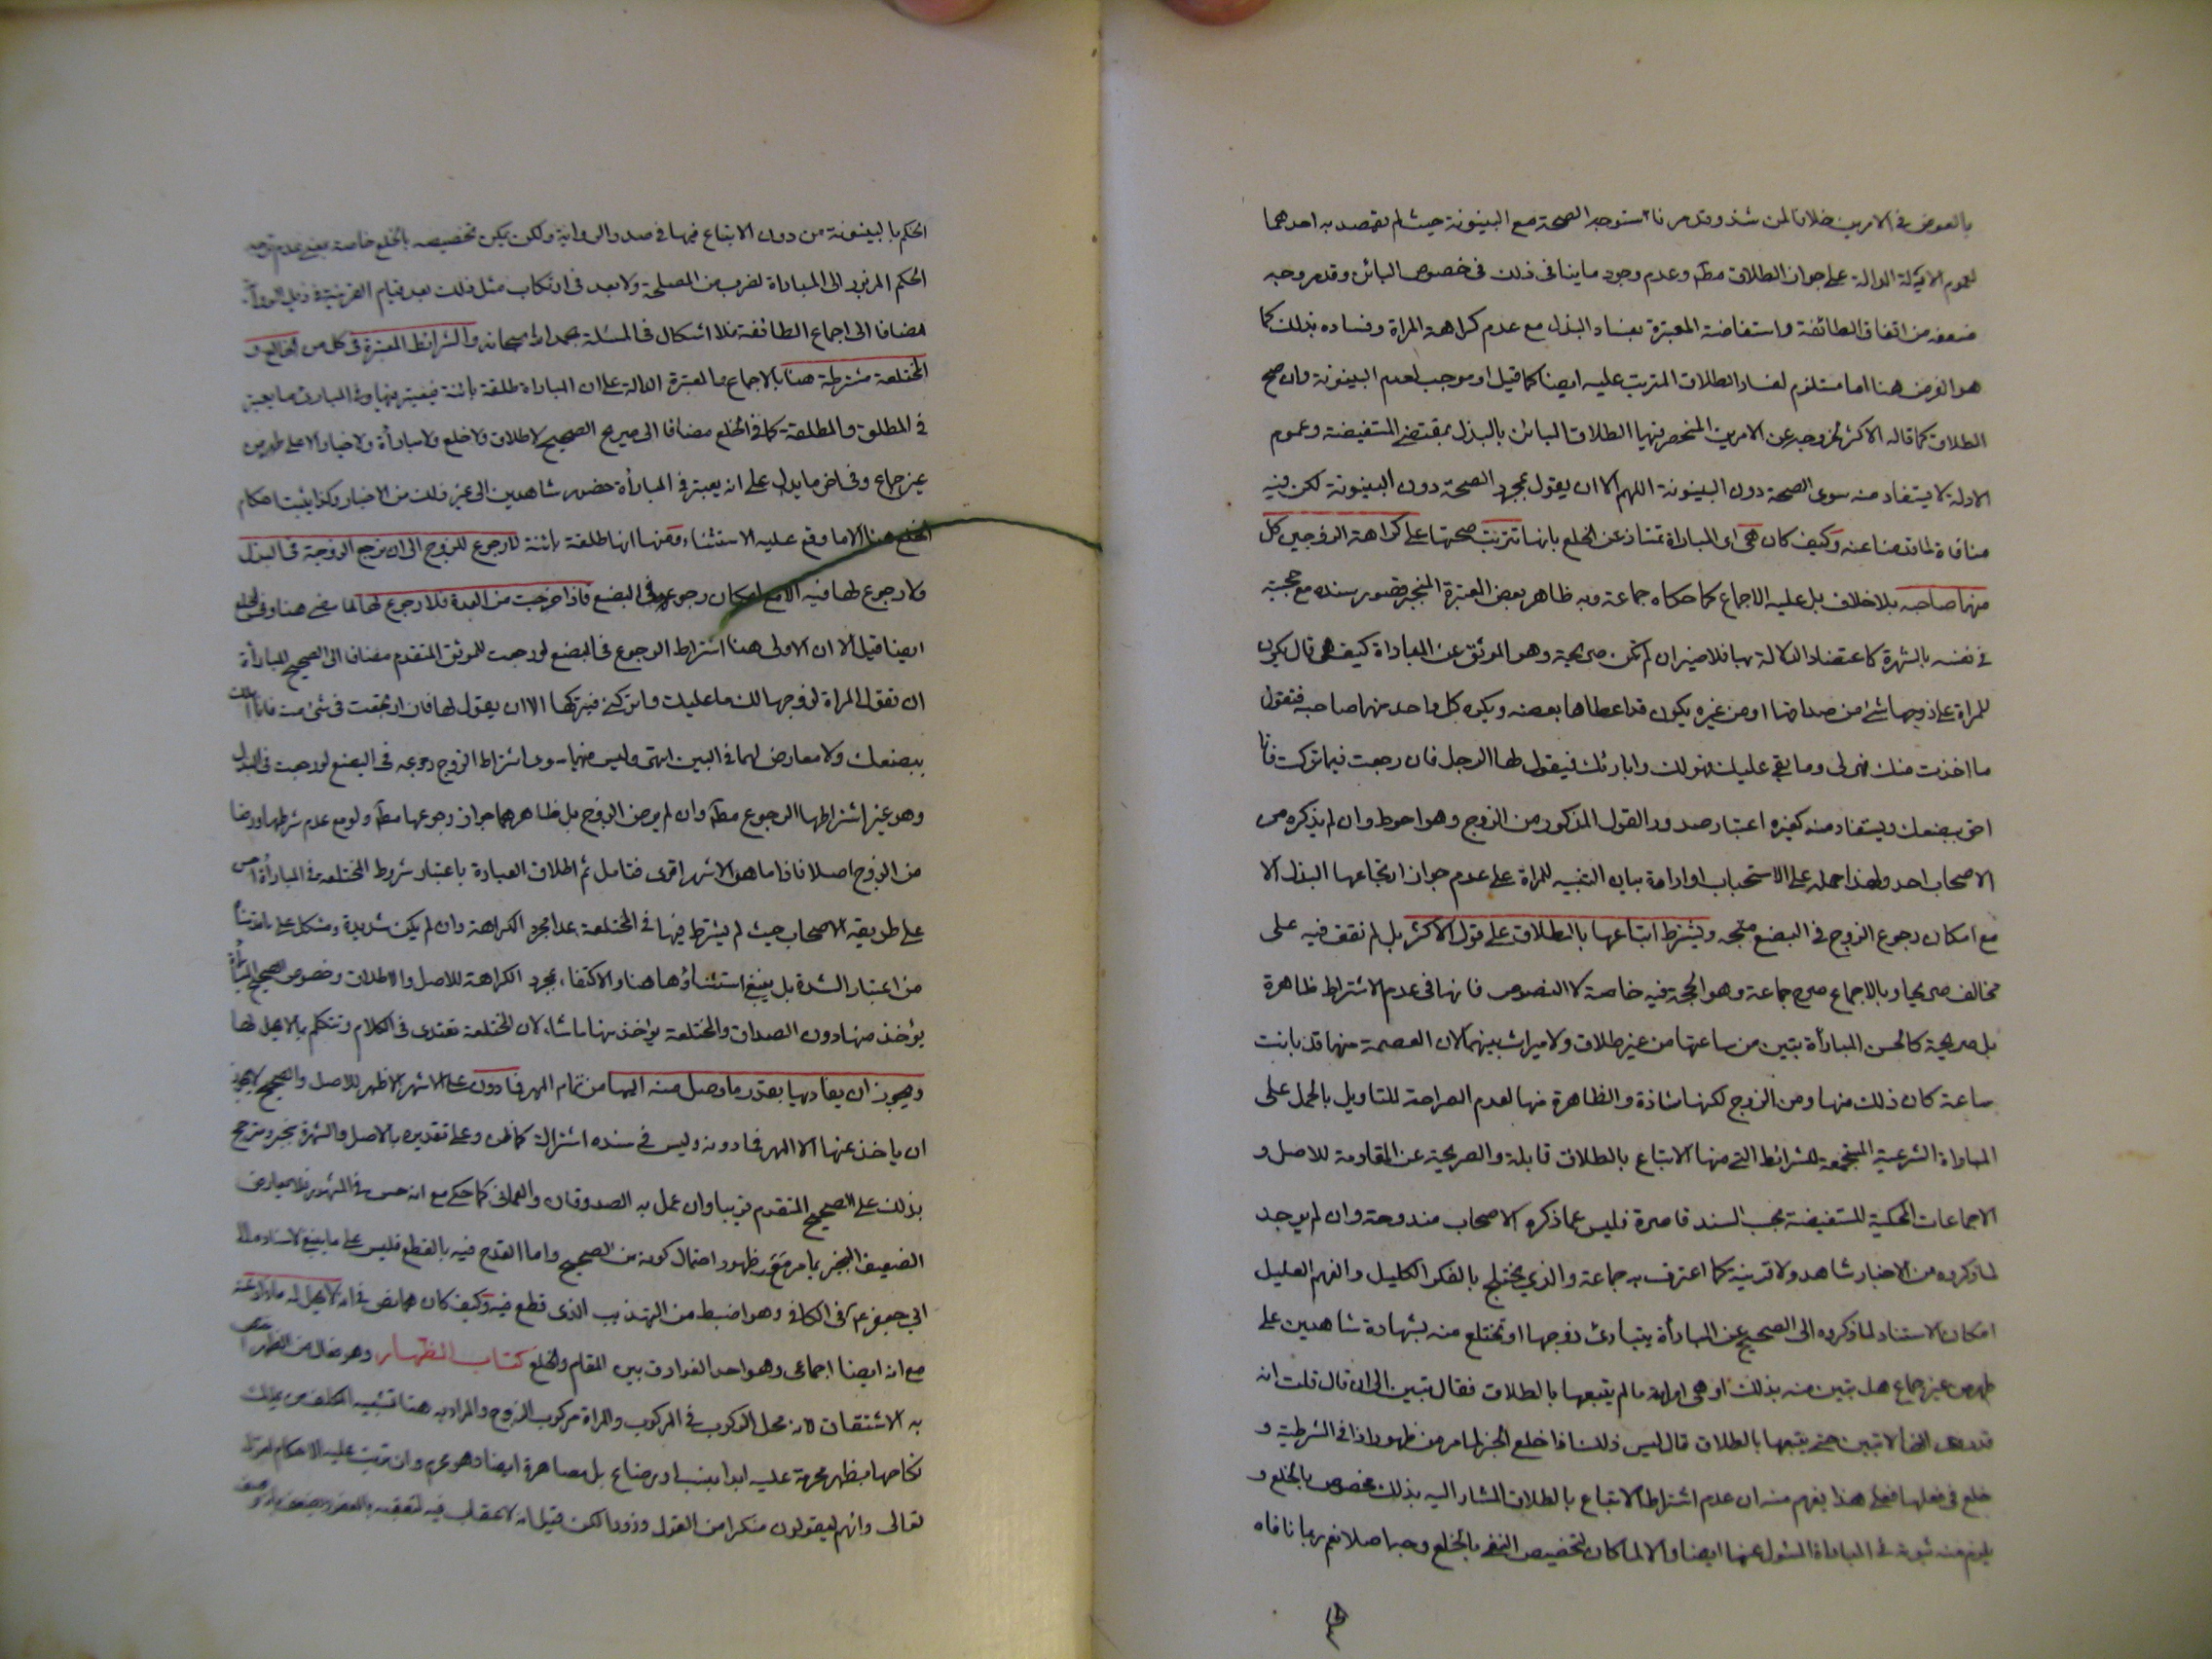 بالعوض في الامرين خلافا لمن شذ وقد مر ما استوجه الصحة مع البينونة حيث لم يقصد به احدهما
لعموم الادلة الدالة على جواز الطلاق مطلقا وعدم وجود ما ينافى ذلك فى خصوص البائن وقد مر وجه
ضعفه من اتفاق الطائفة واستفاضة المعتبرة بفساد البذل مع عدم كراهة المراة وفساده بذلك كما
هو الفرض هنا اما مستلزم لفساد الطلاق المترتب عليه ايضا كما قيل او موجب لعدم البينونة وان صح
الطلاق كما قاله الاكثر لخروجه عن الامرين المنحصر فيهما الطلاق البائن بالبذل بمقتضى المستفيضة وعموم
الادلة لا يستفاد منه سوى الصحة دون البينونة اللهم الا ان يقول بمجرد الصحة دون البينونة لكن فيه
منافاة لما قدمنا عنه وكيف كان هى اى المباراة تمتاز عن الخلع بانها تترتب صحتها على كراهة الزوجين كل
منهما صاحبه بلا خلاف بل عليه الاجماع كما حكاه جماعة وبه ظاهر بعض المعتبرة المنجبر قصور سنده مع حجيته
في نفسه بالشهرة كاعتضاد الدلالة بها فلا ضير ان لم تكن صريحة وهو الموثق عن المباراة كيف هى قال يكون
للمراة على زوجها شئ من صداقها او من غيره يكون قد اعطاها بعضه ويكره كل واحد منهما صاحبه فتقول
ما اخذت منك فهو لى وما بقى عليك فهو لك وابارئك فيقول لها الرجل فان رجعت فيما تركت فانا
احق ببضعك ويستفاد منه كغيره اعتبار صدور القول المذكور من الزوج وهو احوط وان لم يذكره من
الاصحاب احد ولهذا حمله على الاستحباب او ارادة بيان التنبيه للمراة على عدم جواز ارتجاعها البذل الا
مع امكان رجوع الزوج في البضع متجه ويشترط اتباعها بالطلاق على قول الاكثر بل لم نقف فيه على
مخالف صريحا وبالاجماع صرح جماعة وهو الحجة فيه خاصة لا النصوص فانها فى عدم الاشتراط ظاهرة
بل صريحة كالحسن المبارأة تبين من ساعتها من غير طلاق ولا ميراث بينهما لان العصمة منهما قد بانت
ساعة كان ذلك منها ومن الزوج لكنها شاذة والظاهرة منها لعدم الصراحة للتاويل بالحمل على
المباراة الشرعية المستجمعة للشرائط التي منها الاتباع بالطلاق قابلة والصريحة عن المقاومة للاصل و
الاجماعات المحكية المستفيضة بحسب السند قاصرة فليس عما ذكره الاصحاب مندوحة وان لم يوجد
لما ذكروه من الاخبار شاهد ولا قرينة كما اعترف به جماعة والذي يختلج بالفكر الكليل والفهم العليل
امكان الاستناد لما ذكروه الى الصحيح عن المبارأة يتبارئ زوجها او تختلع منه بشهادة شاهدين على
طهر من غير جماع هل تبين منه بذلك او هى امراته ما لم يتبعها بالطلاق فقال تبين الى ان قال قلت انه
قد روى انها لا تبين حتى يتبعها بالطلاق قال ليس ذلك اذا خلع الخبر لما مر من ظهور اذا فى الشرطية و
خلع فى فعلها فعلى هذا يفهم منه ان عدم اشتراط الاتباع بالطلاق المشار اليه بذلك مخصوص بالخلع و
يلزم منه ثبوته في المباراة المسئول عنها ايضا والا لما كان لتخصيص النفى بالخلع وجه اصلا نعم ربما نافاه
الحكم بالبينونة من دون الاتباع فيها في صدر الرواية ولكن يمكن تخصيصه بالخلع خاصة بمعنى عدم توجه
الحكم المزبور الى المباراة لضرب من المصلحة ولا بعد فى ارتكاب مثل ذلك بعد قيام القرينة فى ذيل الرواية
مضافا الى اجماع الطائفة فلا اشكال فى المسئلة بحمد الله سبحانه والشرائط المعتبرة فى كل من الخالع و
المختلعة مشترطة هنا بالاجماع والمعتبرة الدالة على ان المباراة طلقة بائنة فيعتبر فيها وفي المبارئ ما يعتبر
في المطلق والمطلقة كما في الخلع مضافا الى صريح الصحيح لا طلاق ولا خلع ولا مبارأة ولا خيار الا على طهر من
غير جماع وفى اخر ما يدل على انه يعتبر في المبارأة حضور شاهدين الى غير ذلك من الاخبار وكذا يثبت احكام
الخلع هنا الا ما وقع عليه الاستثناء ومنها انها طلقة بائنة لا رجوع للزوج الى ان ترجع الزوجة فى البذل
ولا رجوع لها فيه الا مع امكان رجوعه فى البضع فاذا خرجت من العدة فلا رجوع لها لما مضى هنا وفى الخلع
ايضا قيل الا ان الاولى هنا اشتراط الرجوع فى البضع لو رجعت للموثق المتقدم مضافا الى الصحيح المبارأة
ان تقول المراة لزوجها لك ما عليك واتركنى فيتركها الا ان يقول لها فان ارتجعت فى شئ منه فانا املك
ببضعك ولا معارض لهما في البين انتهى وليس فيهما سوى اشتراط الزوج رجوعه فى البضع لو رجعت فى البذل
وهو غير اشتراطها الرجوع مطلقا وان لم يرض الزوج بل ظاهرهما جواز رجوعها مطلقا ولو مع عدم شرطها ورضا
من الزوج اصلا فاذا ما هو الاشهر اقوى فتامل ثم اطلاق العبارة باعتبار شروط المختلعة في المبارأة ماش
على طريقة الاصحاب حيث لم يشترط فيها في المختلعة عدا مجرد الكراهة وان لم يكن شديدة ومشكل على ما قدمنا
من اعتبار الشدة بل ينبغي استثناؤها هنا والاكتفاء بمجرد الكراهة للاصل والاطلاق وخصوص الصحيح المبارأة
يؤخذ منها دون الصداق والمختلعة يؤخذ منها ما شاء لان المختلعة تعتدى فى الكلام وتتكلم بما لا يحل لها
ويجوز ان يفاديها بقدر ما وصل منه اليها من تمام المهر فما دون على الاشهر الاظهر للاصل والصحيح لا يجوز
ان ياخذ منها الا المهر فما دونه وليس في سنده اشتراك كما ظن وعلى تقديره بالاصل والشهرة يجبر ومترجح
بذلك على الصحيح المتقدم قريبا وان عمل به الصدوقان والعمانى كما حكى مع انه حسن في المشهور فلا يعارض
الضعيف المنجبر بما مر مع ظهور احتمال كونه من الصحيح واما القدح فيه بالقطع فليس على ما ينبغي لاسناده الى
ابي جعفر ع فى الكافي وهو اضبط من التهذيب الذى قطع فيه وكيف كان هما نص في انه لا يحل له ما زاد عنه
مع انه ايضا اجماعى وهو احد الفوارق بين المقام والخلع كتاب الظهار وهو فعال من الظهر اختص
به الاشتقاق لانه محل الركوب في المركوب والمراة مركوب الزوج والمراد به هنا تشبيه المكلف من يملك
نكاحها بظهر محرمة عليه ابدا بنسب او رضاع بل مصاهرة ايضا وهو محرم وان ترتب عليه الاحكام لقوله
تعالى وانهم ليقولون منكرا من القول وزورا لكن قيل انه لا عقاب فيه لتعقبه بالعفو ويضعف بان وصفه